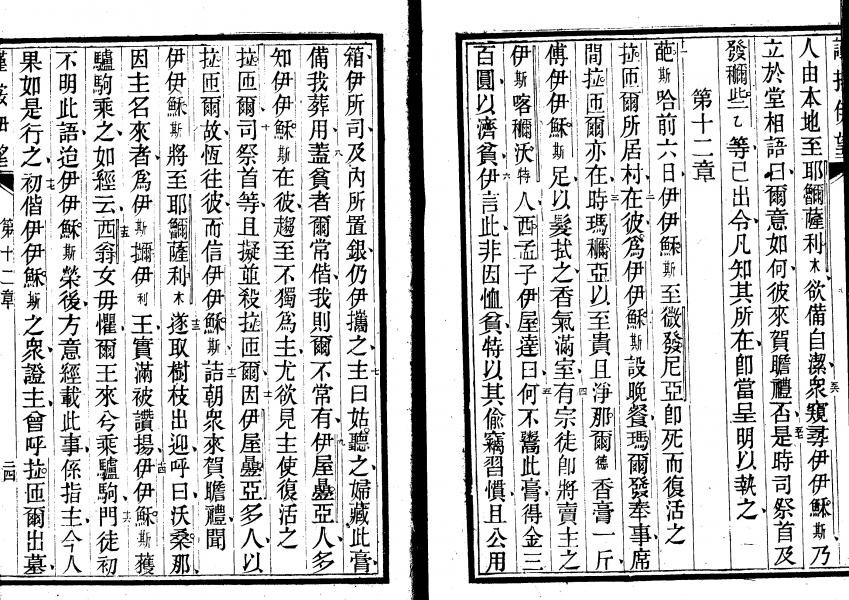 人由本地至耶穪薩利木欲備自潔衆窺尋伊伊穌斯乃
立於堂相語曰爾意如何彼來賀瞻禮否是時司祭首及
發穪些乙等已出令凡知其所在卽當呈明以執之
第十二章
葩斯哈前六日伊伊穌斯至微發尼亞卽死而復活之
拉匝爾所居村在彼爲伊伊穌斯設晚餐瑪爾發奉事席
間拉匝爾亦在時瑪穪亞以至貴且淨那爾德香膏一斤
傅伊伊穌斯足以髮拭之香氣滿室有宗徒卽將賣主之
伊斯喀穪沃特人西孟子伊屋達曰何不鬻此膏得金三
百圓以濟貧伊言此非因恤貧特以其偷竊習慣且公用
箱伊所司及內所置銀仍伊攜之主曰姑聽之婦藏此膏
備我葬用蓋貧者爾常偕我則爾不常有伊屋疊亞人多
知伊伊穌斯在彼趨至不獨爲主尤欲見主使復活之
拉匝爾司祭首等且擬並殺拉匝爾因伊屋疊亞多人以
拉匝爾故恆往彼而信伊伊穌斯詰朝衆來賀瞻禮聞
伊伊穌斯將至耶穪薩利木遂取樹枝出迎呼曰沃桑那
因主名來者爲伊斯攦伊利王實滿被讚揚伊伊穌斯獲
驢駒乘之如經云西翁女毋懼爾王來兮乘驢駒門徒初
不明此語迨伊伊穌斯榮後方意經載此事係指主今人
果如是行之初偕伊伊穌斯之衆證主曾呼拉匝爾出墓
第十二章
二四